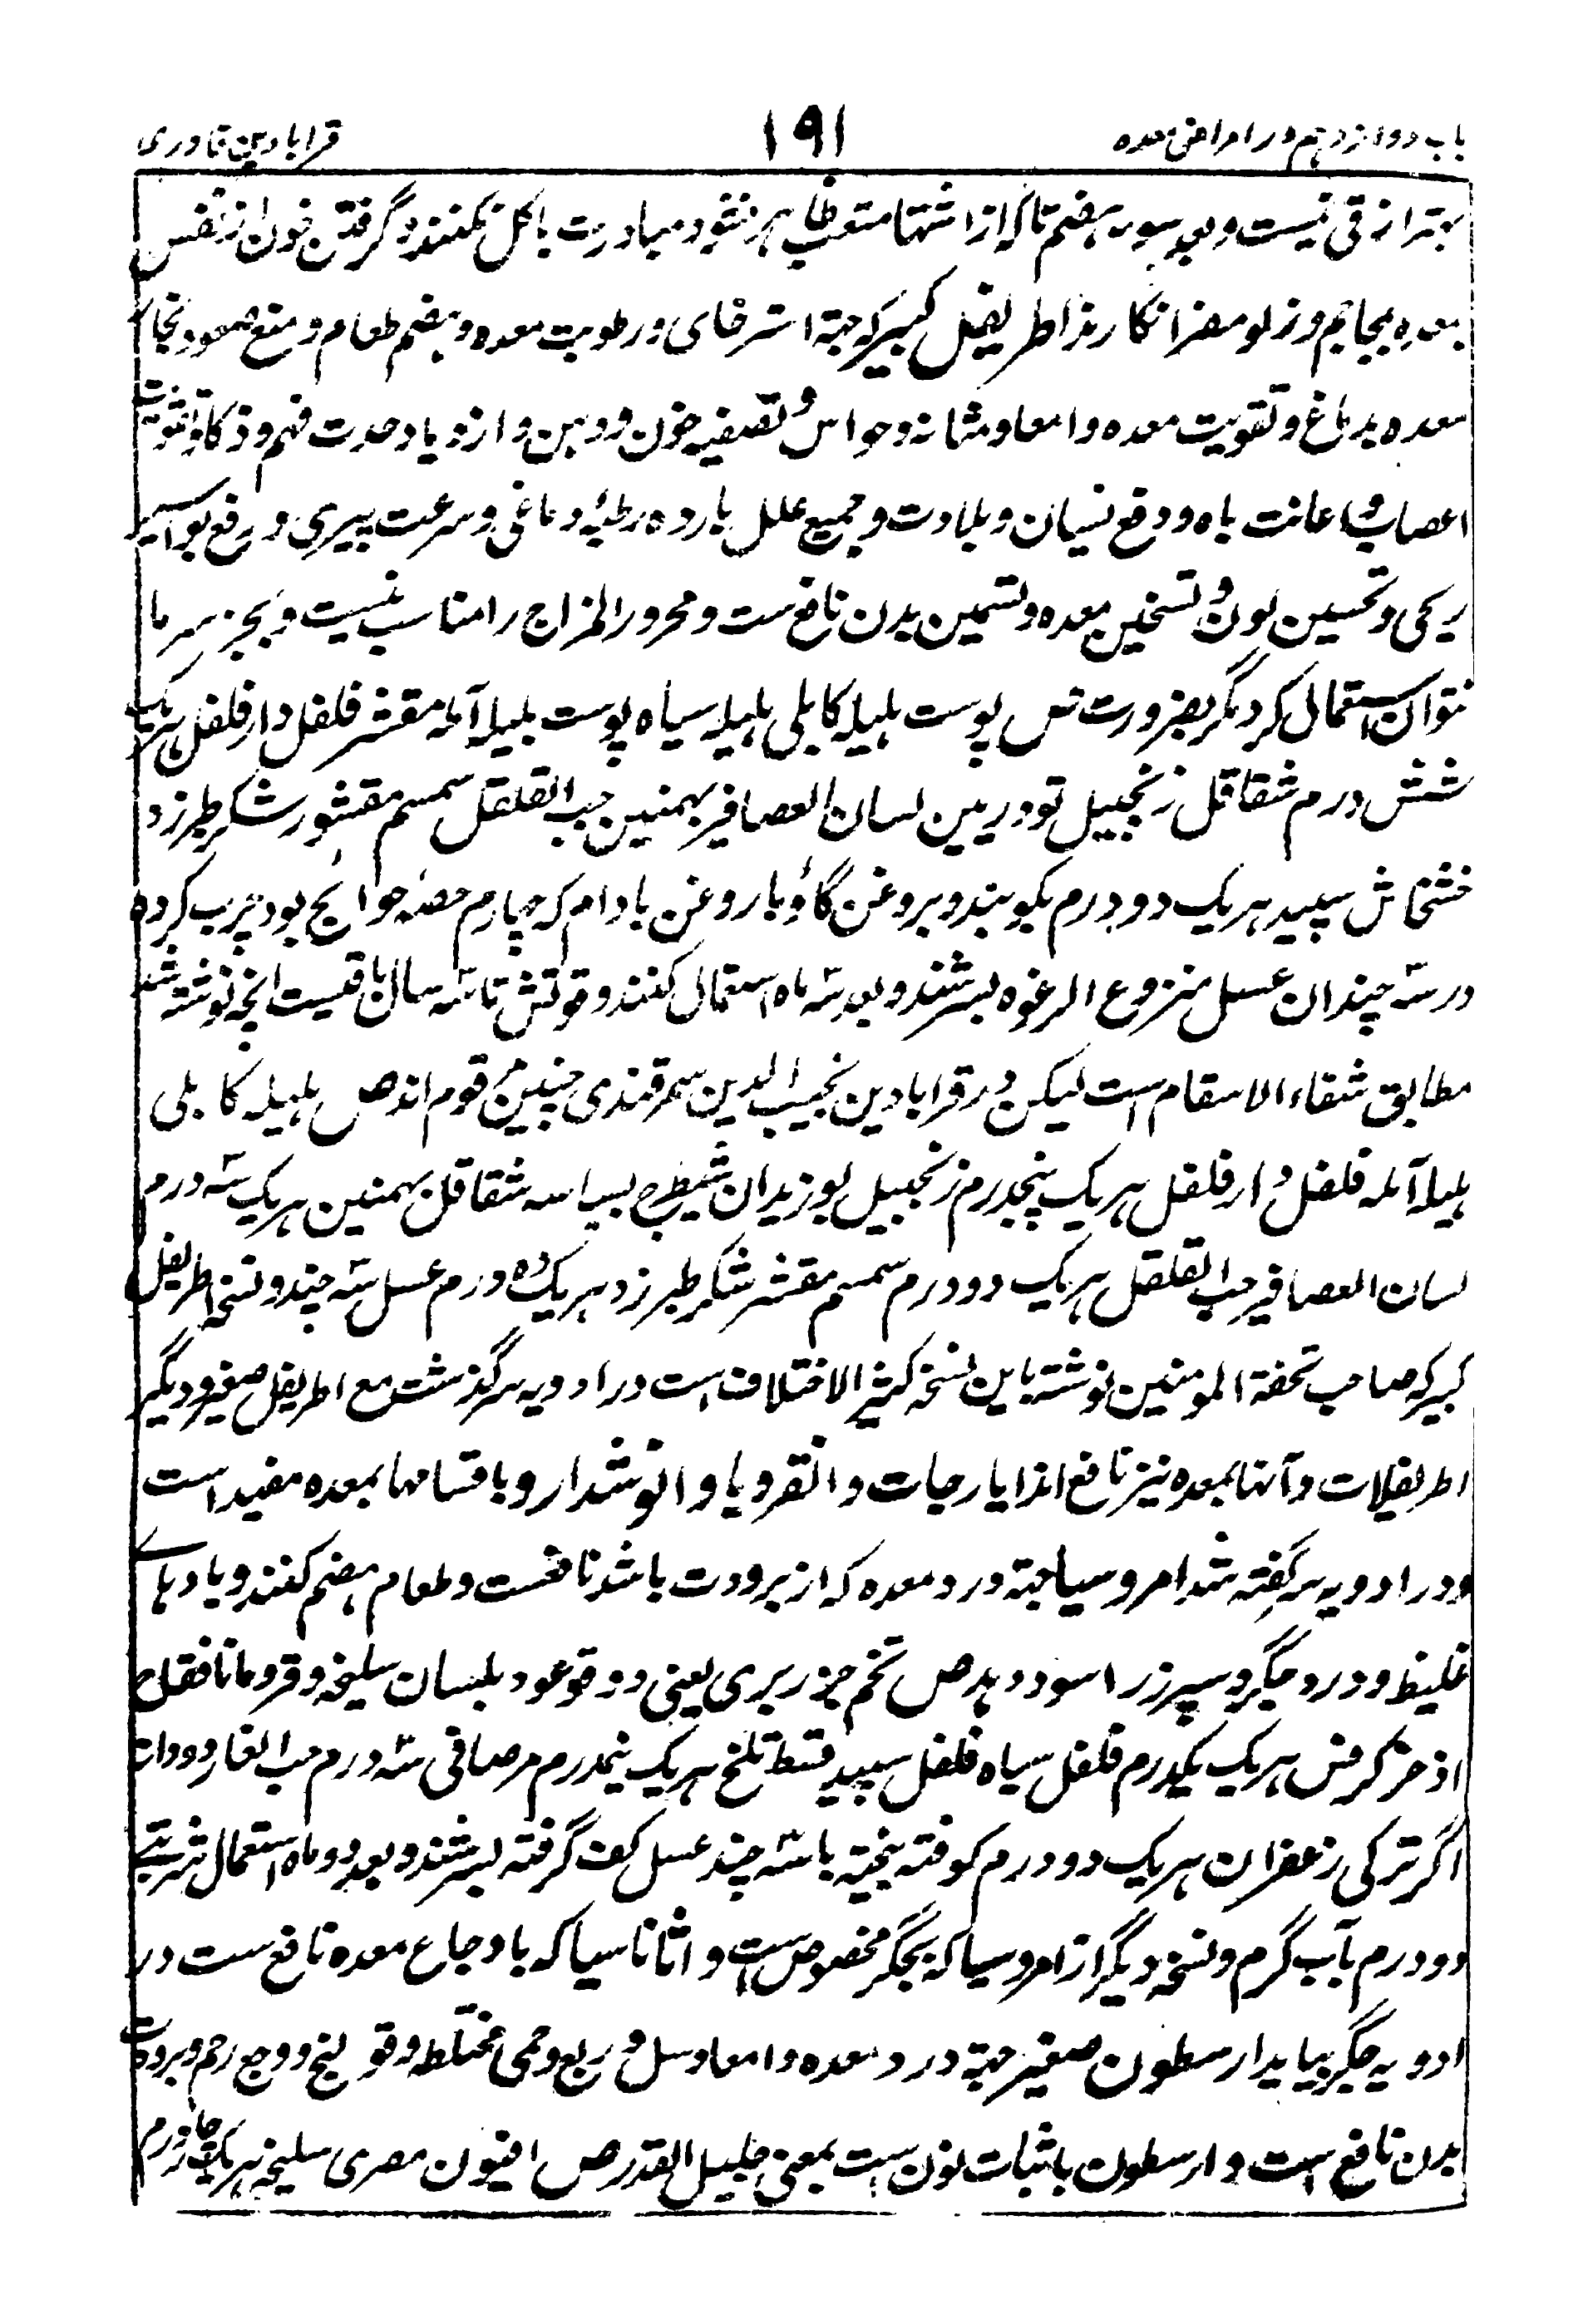 باب دوازدهم در امراض معده ۱۹۱ قرابادین قادری
بهتر از قی نیست و بعد سوء هضم تا که از اشتها متعب ظاهر نشود مبادرت باکل نکنند و گرفتن خون از نفس
معده بمجاجم و زلو مضر انکارند اطریفل کبیر که جهة استرخای و رطوبت معده و هضم طعام و منع صعود بخار
معده بدماغ و تقویت معده و امعا و مثانه و حواس و تصفیه خون و ذهن و ازدیاد حدت فهم و ذکا و تقویت
اعصاب و اعانت باه و دفع نسیان و بلادت و جمیع علل بارده رطبه دماغی و سرعت پیری و رفع بواسیر
ریحی و تحسین لون و تسخین معده و تسمین بدن نافع ست و محرور المزاج را مناسب نیست و بجز سرما
نتوان استعمال کرد مگر بضرورت ص پوست هلیله کابلی هلیله سیاه پوست بلیله آمله مقشر فلفل دارفلفل هر یک
شش درم شقاقل زنجبیل تودریین لسان العصافیر بهمنین حب القلقل سمسم مقشور شکر طبرزد
خشخاش سپید هر یک دو درم بکوبند و بروغن گاؤ یا روغن بادام که چهارم حصهٔ حوائج بود چرب کرده
در سه چندان عسل منزوع الرغوه بسرشند و بعد سه ماه استعمال کنند و قوتش تا سه سال باقیست انچه نوشته شد
مطابق شفاء الاسقام است لیکن در قرابادین نجیب الدین سمرقندی چنین مرقوم اند ص هلیله کابلی
بلیله آمله فلفل دارفلفل هر یک پنجدرم زنجبیل بوزیدان شیطرج بسباسه شقاقل بهمنین هر یک سه درم
لسان العصافیر حب القلقل هر یک دو درم سمسم مقشر شکر طبرزد هر یک ده درم عسل سه چند و نسخه اطریفل
کبیر که صاحب تحفة المومنین نوشته باین نسخه کثیر الاختلاف است در ادویه سر گذشت مع اطریفل صغیر و دیگر
اطریفلات و آنها بمعده نیز نافع اند ایارجات و انقرویا و انوشدارو باقسامها بمعده مفید است
و در ادویه سر گفته شد امروسیا جهة درد معده که از برودت باشد نافعست و طعام هضم کنند و بادهای
غلیظ و درد جگر و سپرز را سود دهد ص تخم جزر بری یعنی دوقو عود بلسان سلیخه و قردمانا فقاح
اذخر کرفس هر یک یکدرم فلفل سیاه فلفل سپید قسط تلخ هر یک نیمدرم مر صافی سه درم حب الغار دو دانه
اگر ترکی زعفران هر یک دو درم کوفته بیخته با سه چند عسل کف گرفته بسرشند و بعد دو ماه استعمال شربتے
دو درم بآب گرم و نسخه دیگر از امروسیا که بجگر مخصوص ست و اثاناسیا که باوجاع معده نافع ست در
ادویه جگر بیاید ارسطون صغیر جهة درد معده و امعا و سل و ربع و حمی مختلطه و قولنج و وجع رحم و برودت
بدن نافع است و ارسطون باثبات نون ست بمعنی جلیل القدر ص افیون مصری سلیخه هر یک چهار درم